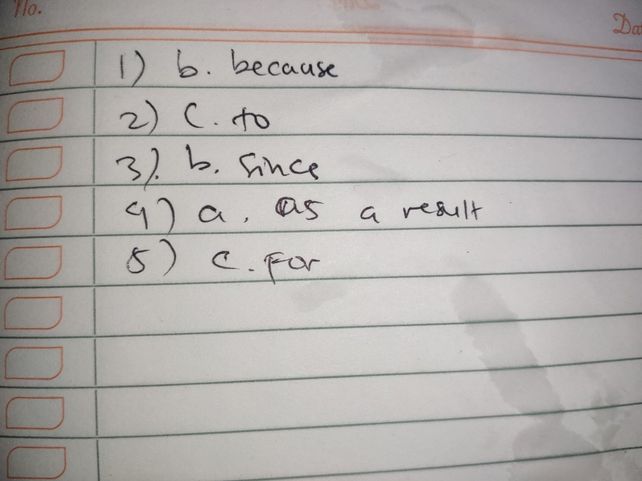 No.
Da
1) b. because
2) C. to
3). b. Since
4) a. as a result
5) c. For